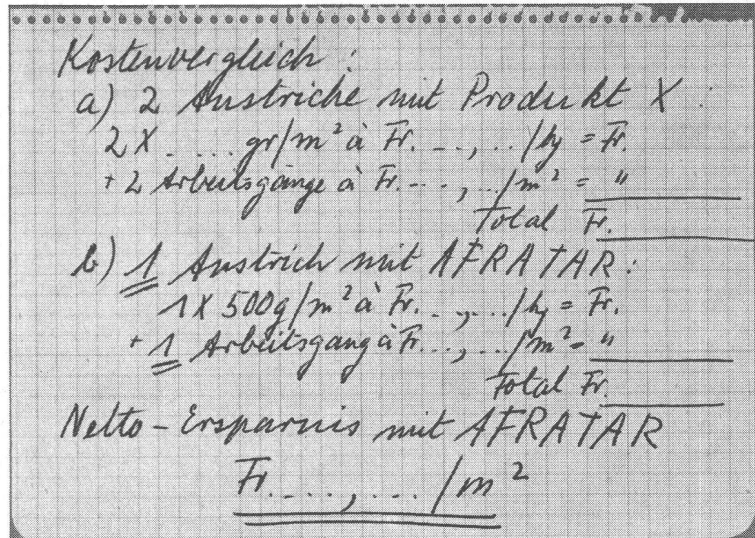 Kostenvergleich:
a) 2 Anstriche mit Produkt X:
2X .... gr/m² à Fr. ..., .../kg = Fr.
+ 2 Arbeitsgänge à Fr. ..., .../m² = "
Total Fr.
b) 1 Anstrich mit AFRATAR:
1 X 500g/m² à Fr. ..., .../kg = Fr.
+ 1 Arbeitsgang à Fr. ..., .../m² = "
Total Fr.
Netto-Ersparnis mit AFRATAR
Fr. ...., .... /m²